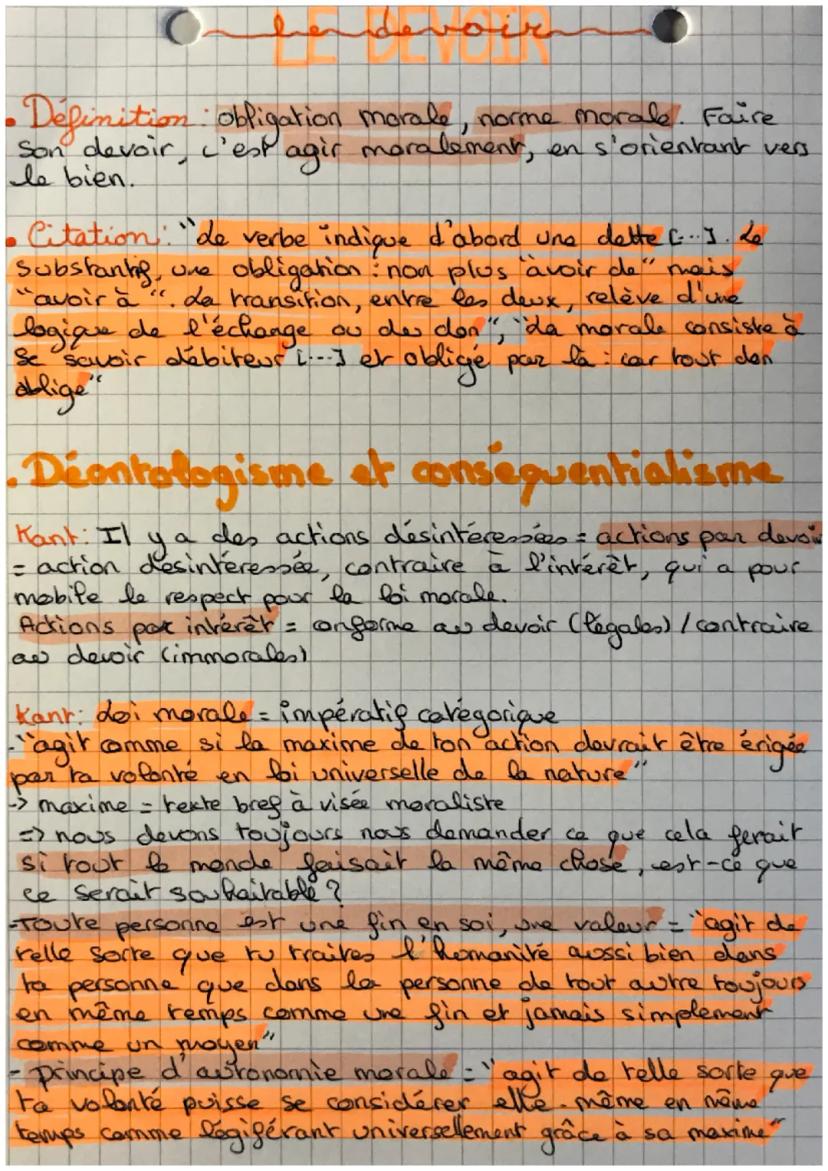 LE DEVOIR
Le devoir
• Définition : obligation morale, norme morale. Faire
son devoir, c'est agir moralement, en s'orientant vers
le bien.
• Citation : "Le verbe indique d'abord une dette [...]. Le
substantif, une obligation : non plus "avoir de" mais
"avoir à". La transition, entre les deux, relève d'une
logique de l'échange ou du don", "La morale consiste à
se savoir débiteur [...] et obligé par là : car tout don
oblige"
• Déontologisme et conséquentialisme
Kant : Il y a des actions désintéressées = actions par devoir
= action désintéressée, contraire à l'intérêt, qui a pour
mobile le respect pour la loi morale.
Actions par intérêt = conforme au devoir (légales) / contraire
au devoir (immorales)
Kant : Loi morale = impératif catégorique
- "agit comme si la maxime de ton action devrait être érigée
par ta volonté en loi universelle de la nature"
-> maxime = texte bref à visée moraliste
=> nous devons toujours nous demander ce que cela ferait
si tout le monde faisait la même chose, est-ce que
ce serait souhaitable ?
- Toute personne est une fin en soi, une valeur = "agit de
telle sorte que tu traites l'humanité aussi bien dans
ta personne que dans la personne de tout autre toujours
en même temps comme une fin et jamais simplement
comme un moyen"
- principe d'autonomie morale = "agit de telle sorte que
ta volonté puisse se considérer elle-même en même
temps comme légiférant universellement grâce à sa maxime"